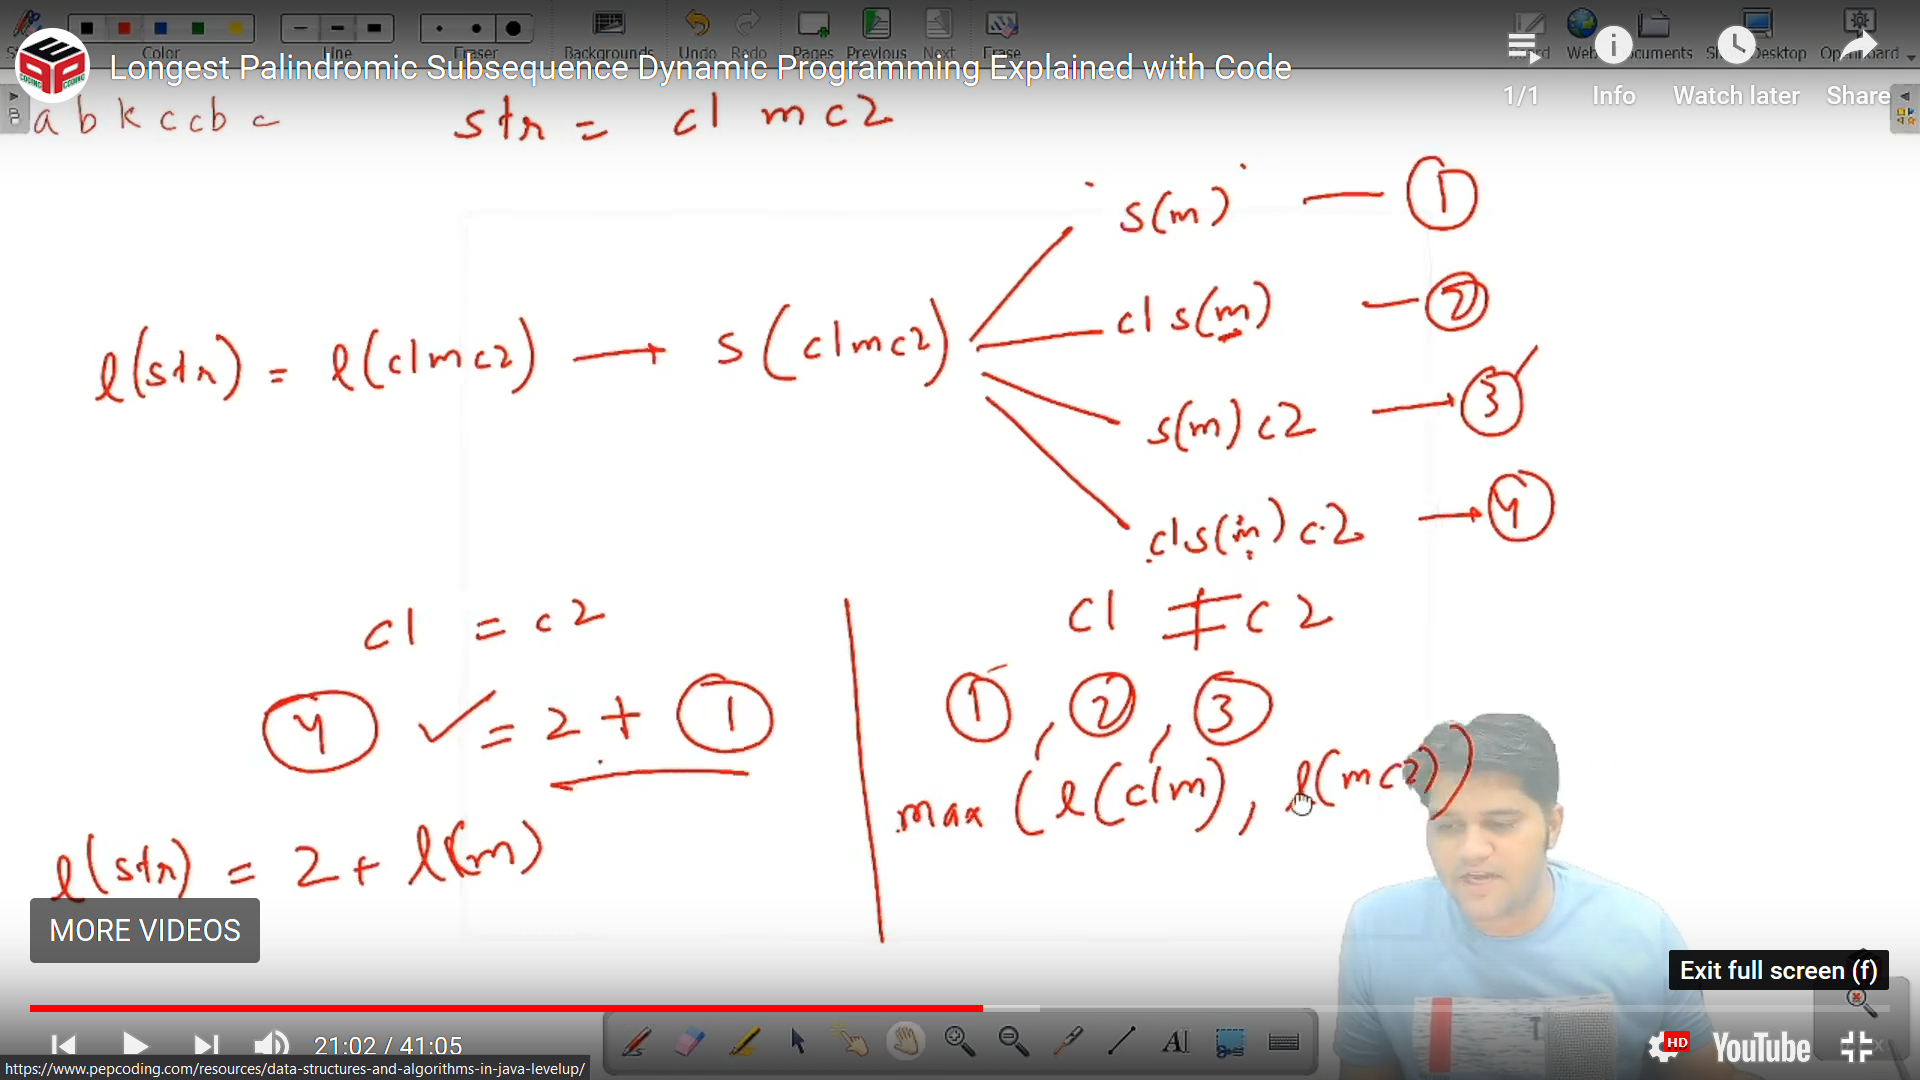 Color
Line
Eraser
Backgrounds
Undo
Redo
Pages
Previous
Next
Erase
Desktop
Longest Palindromic Subsequence Dynamic Programming Explained with Code
1/1
Info
Watch later
Share
a b k c c b c
str = c1 m c2
s(m) — 1
c1 s(m) — 2
l(str) = l(c1mc2) → s(c1mc2)
s(m) c2 → 3
c1s(m) c2 → 4
c1 = c2
c1 ≠ c2
4 ✓ = 2 + 1
1 , 2 , 3
max (l(c1m), l(mc2))
l(str) = 2 + l(m)
MORE VIDEOS
Exit full screen (f)
21:02 / 41:05
HD
YouTube
https://www.pepcoding.com/resources/data-structures-and-algorithms-in-java-levelup/